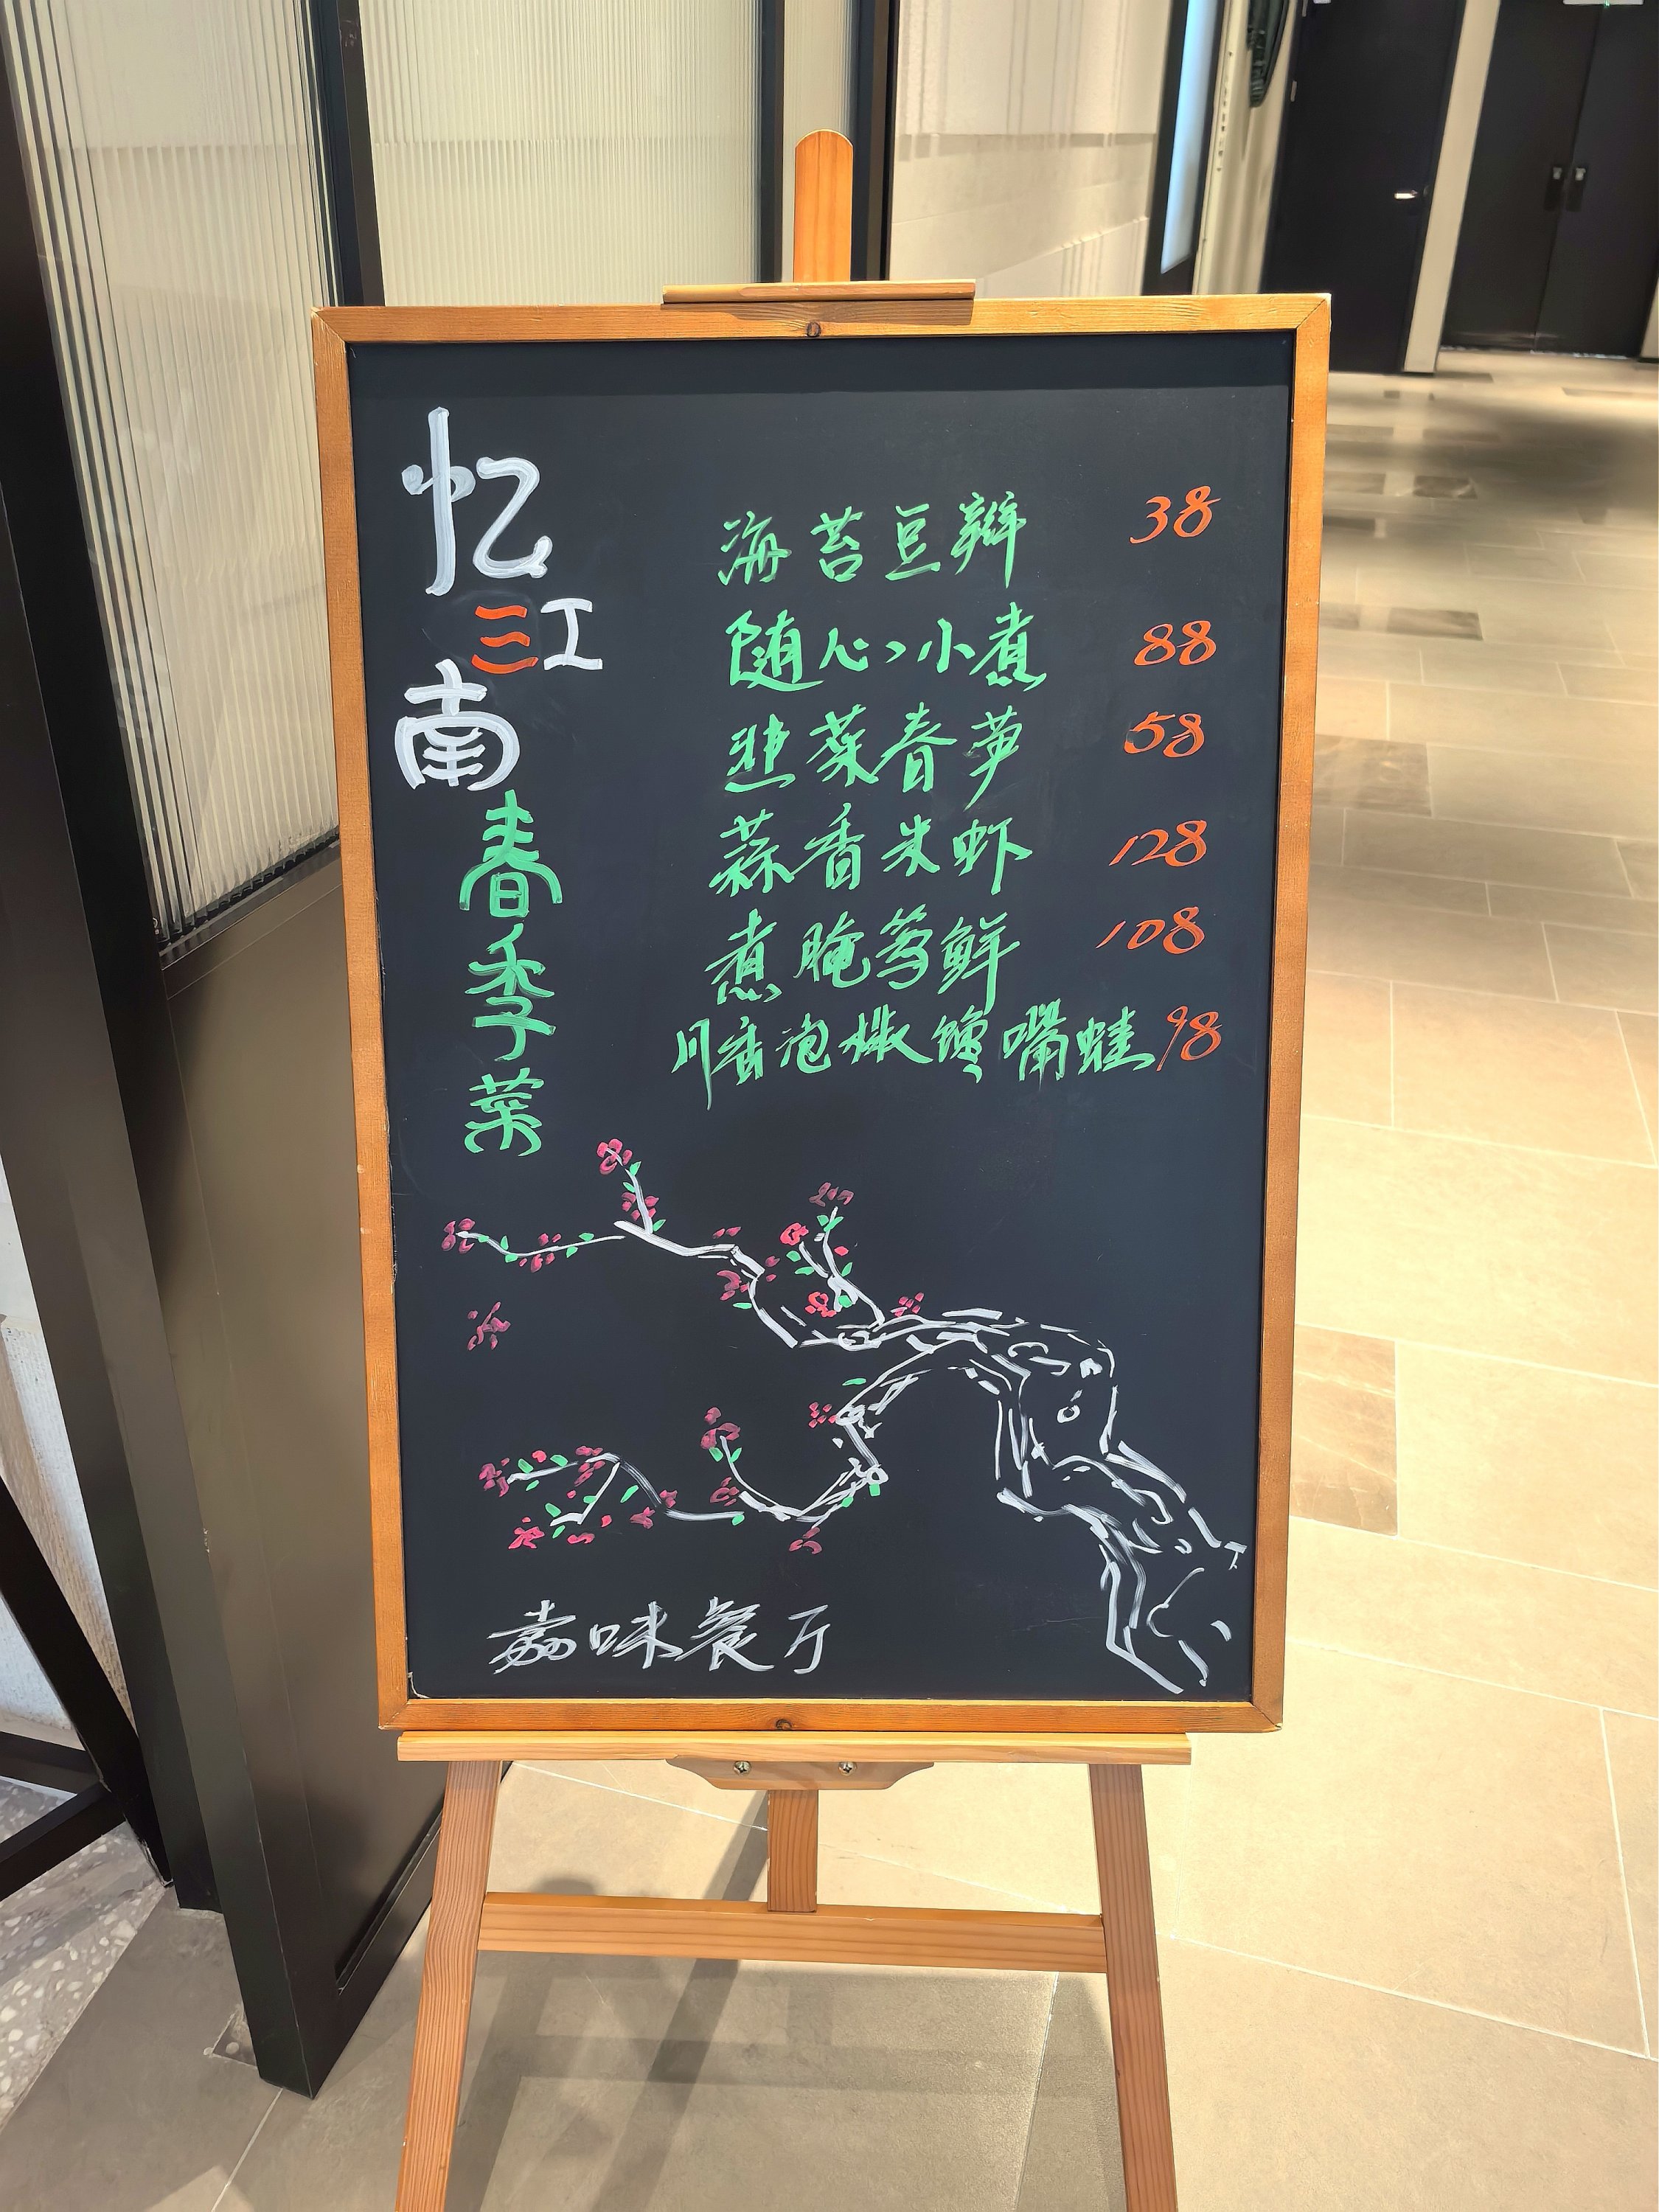 忆江南
春季菜
海苔豆瓣 38
随心小煮 88
韭菜春笋 58
蒜香米虾 128
煮腌笃鲜 108
川香泡椒馋嘴蛙 98
嘉味餐厅